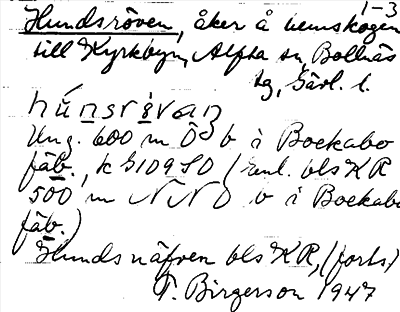 1-3
Hundsröven, åker å hemskogen
till Kyrkbyn, Alfta sn, Bollnäs
tg, Gävl. l.
Ung. 600 m ÖSÖ b i Bockabo
fäb., k G109SO (enl. bls KR
500 m NNO v i Bockabo
fäb.)
Hundsnäfven bls KR, (forts)
F. Birgerson 1947